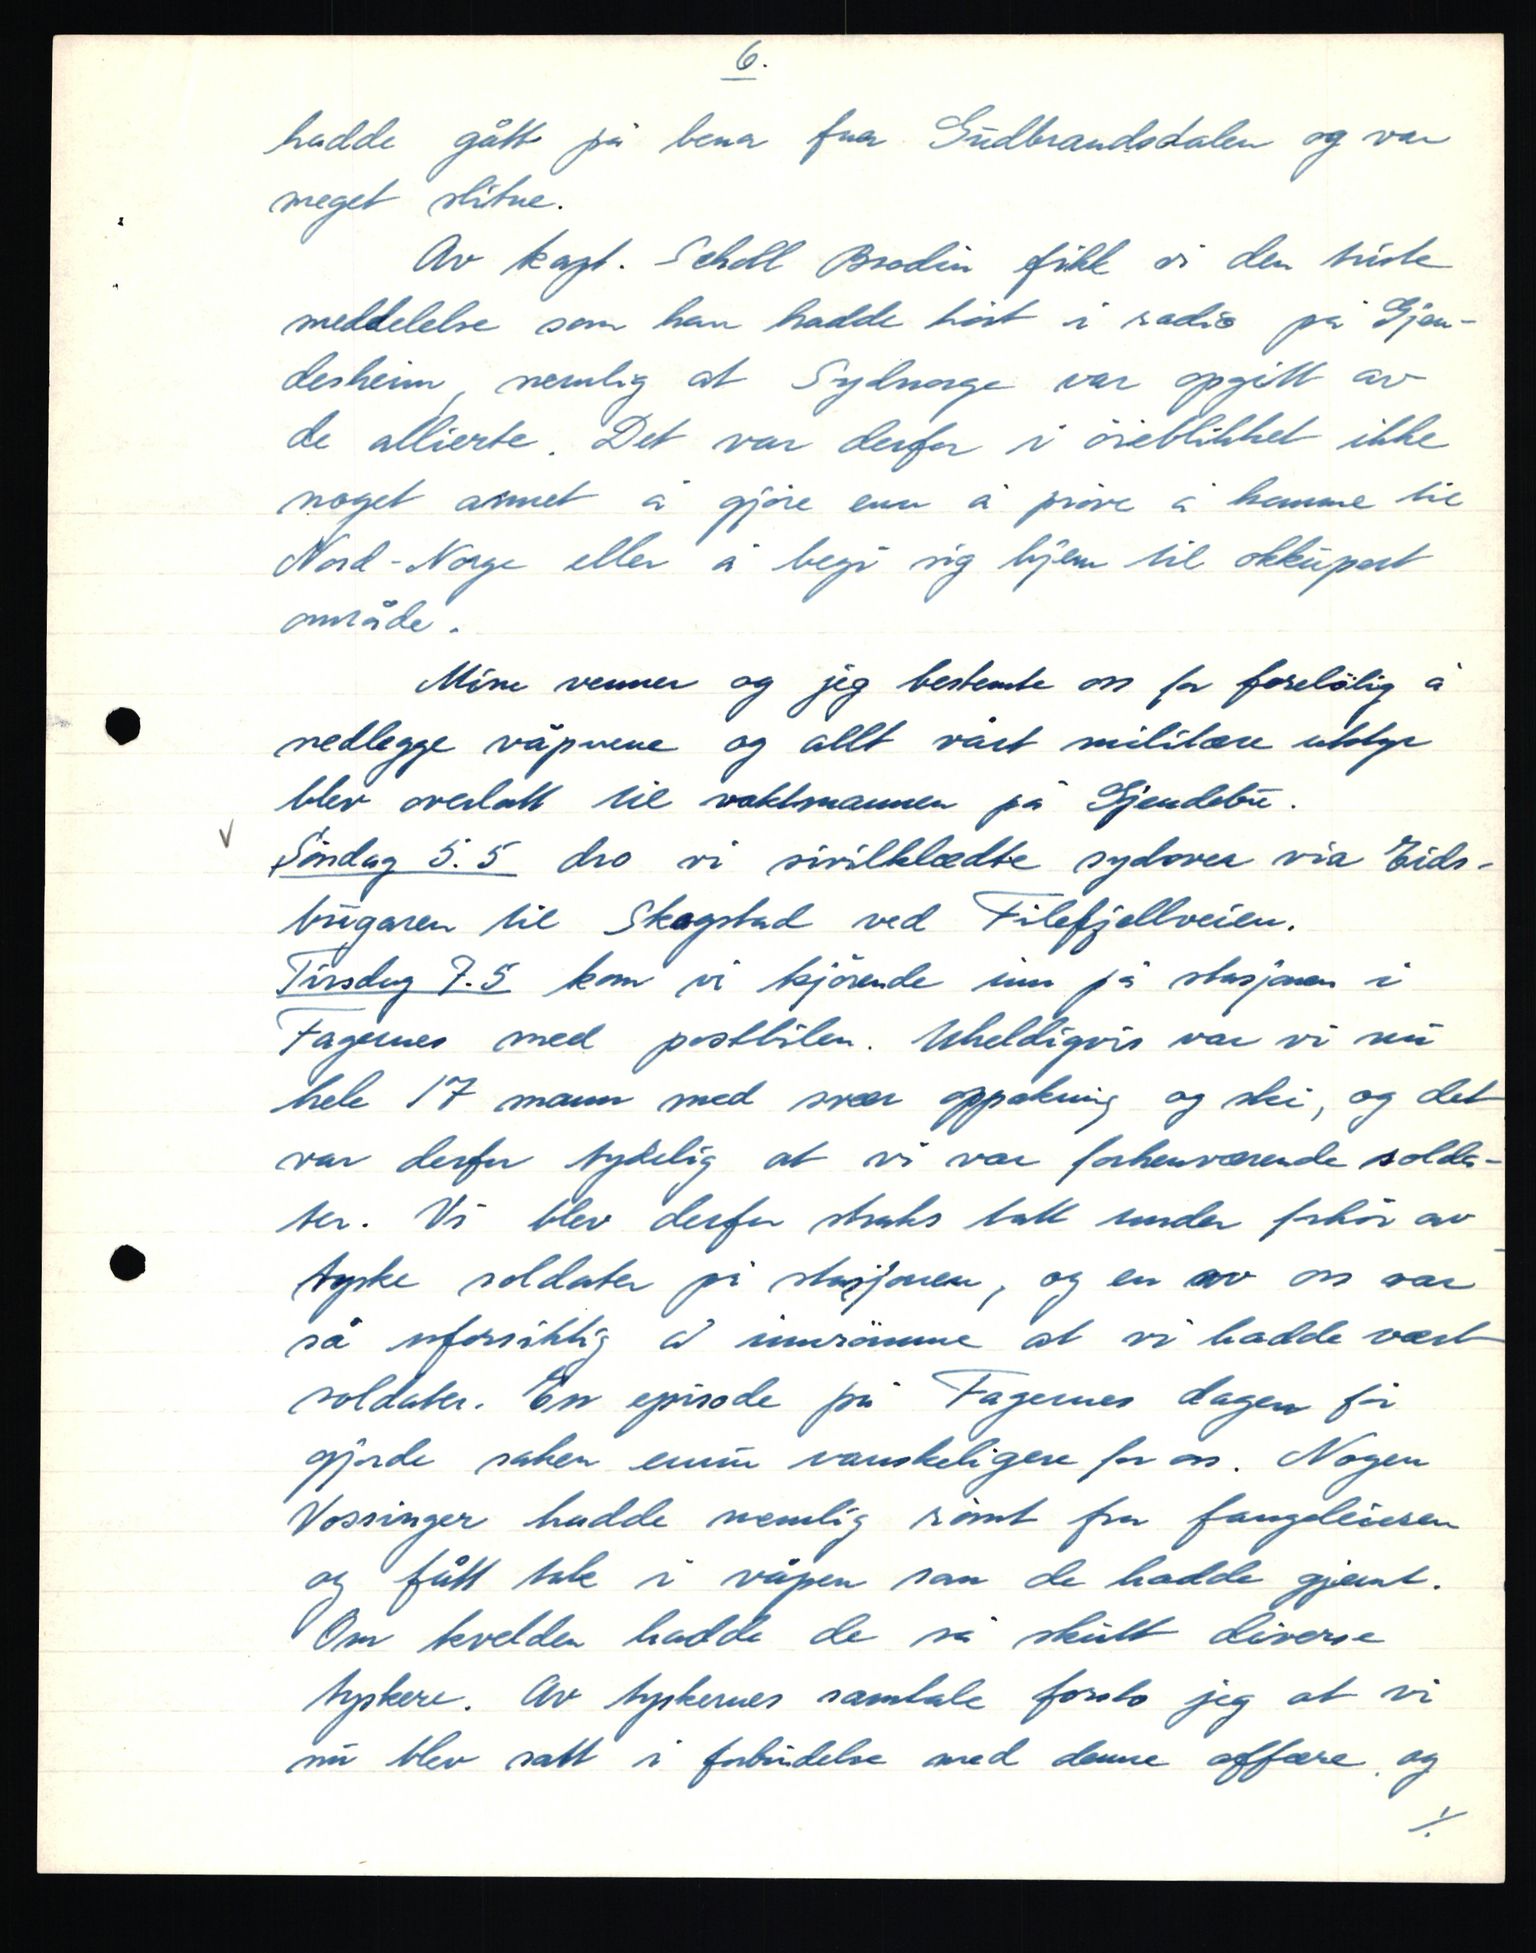 6.
hadde gått på bena fra Gudbrandsdalen og var
meget slitne.
Av kapt. Scholl Brodin fikk vi den triste
meddelelse som han hadde hört i radio på Gjen-
desheim, nemlig at Sydnorge var opgitt av
de allierte. Det var derfor i öieblikket ikke
noget annet å gjöre enn å pröve å komme til
Nord-Norge eller å begi sig hjem til okkupert
område.
Mine venner og jeg bestemte oss for forelöbig å
nedlegge våpnene og allt vårt militære utstyr
blev overlatt til vaktmannen på Gjendebu.
V
Söndag 5.5 dro vi sivilklædte sydover via Eids-
bugaren til Skogstad ved Filefjellveien.
Tirsdag 7.5 kom vi kjörende inn på stasjonen i
Fagernes med postbilen. Uheldigvis var vi nu
hele 17 mann med svær oppakning og ski, og det
var derfor tydelig at vi var forhenværende solda-
ter. Vi blev derfor straks tatt under forhör av
tyske soldater på stasjonen, og en av oss var
så uforsiktig å innrömme at vi hadde vært
soldater. En episode på Fagernes dagen för
gjorde saken ennu vanskeligere for oss. Nogen
Vossinger hadde nemlig römt fra fangeleieren
og fått tak i våpen som de hadde gjemt.
Om kvelden hadde de så skutt diverse
tyskere. Av tyskernes samtale forsto jeg at vi
nu blev satt i forbindelse med denne affære og
./.